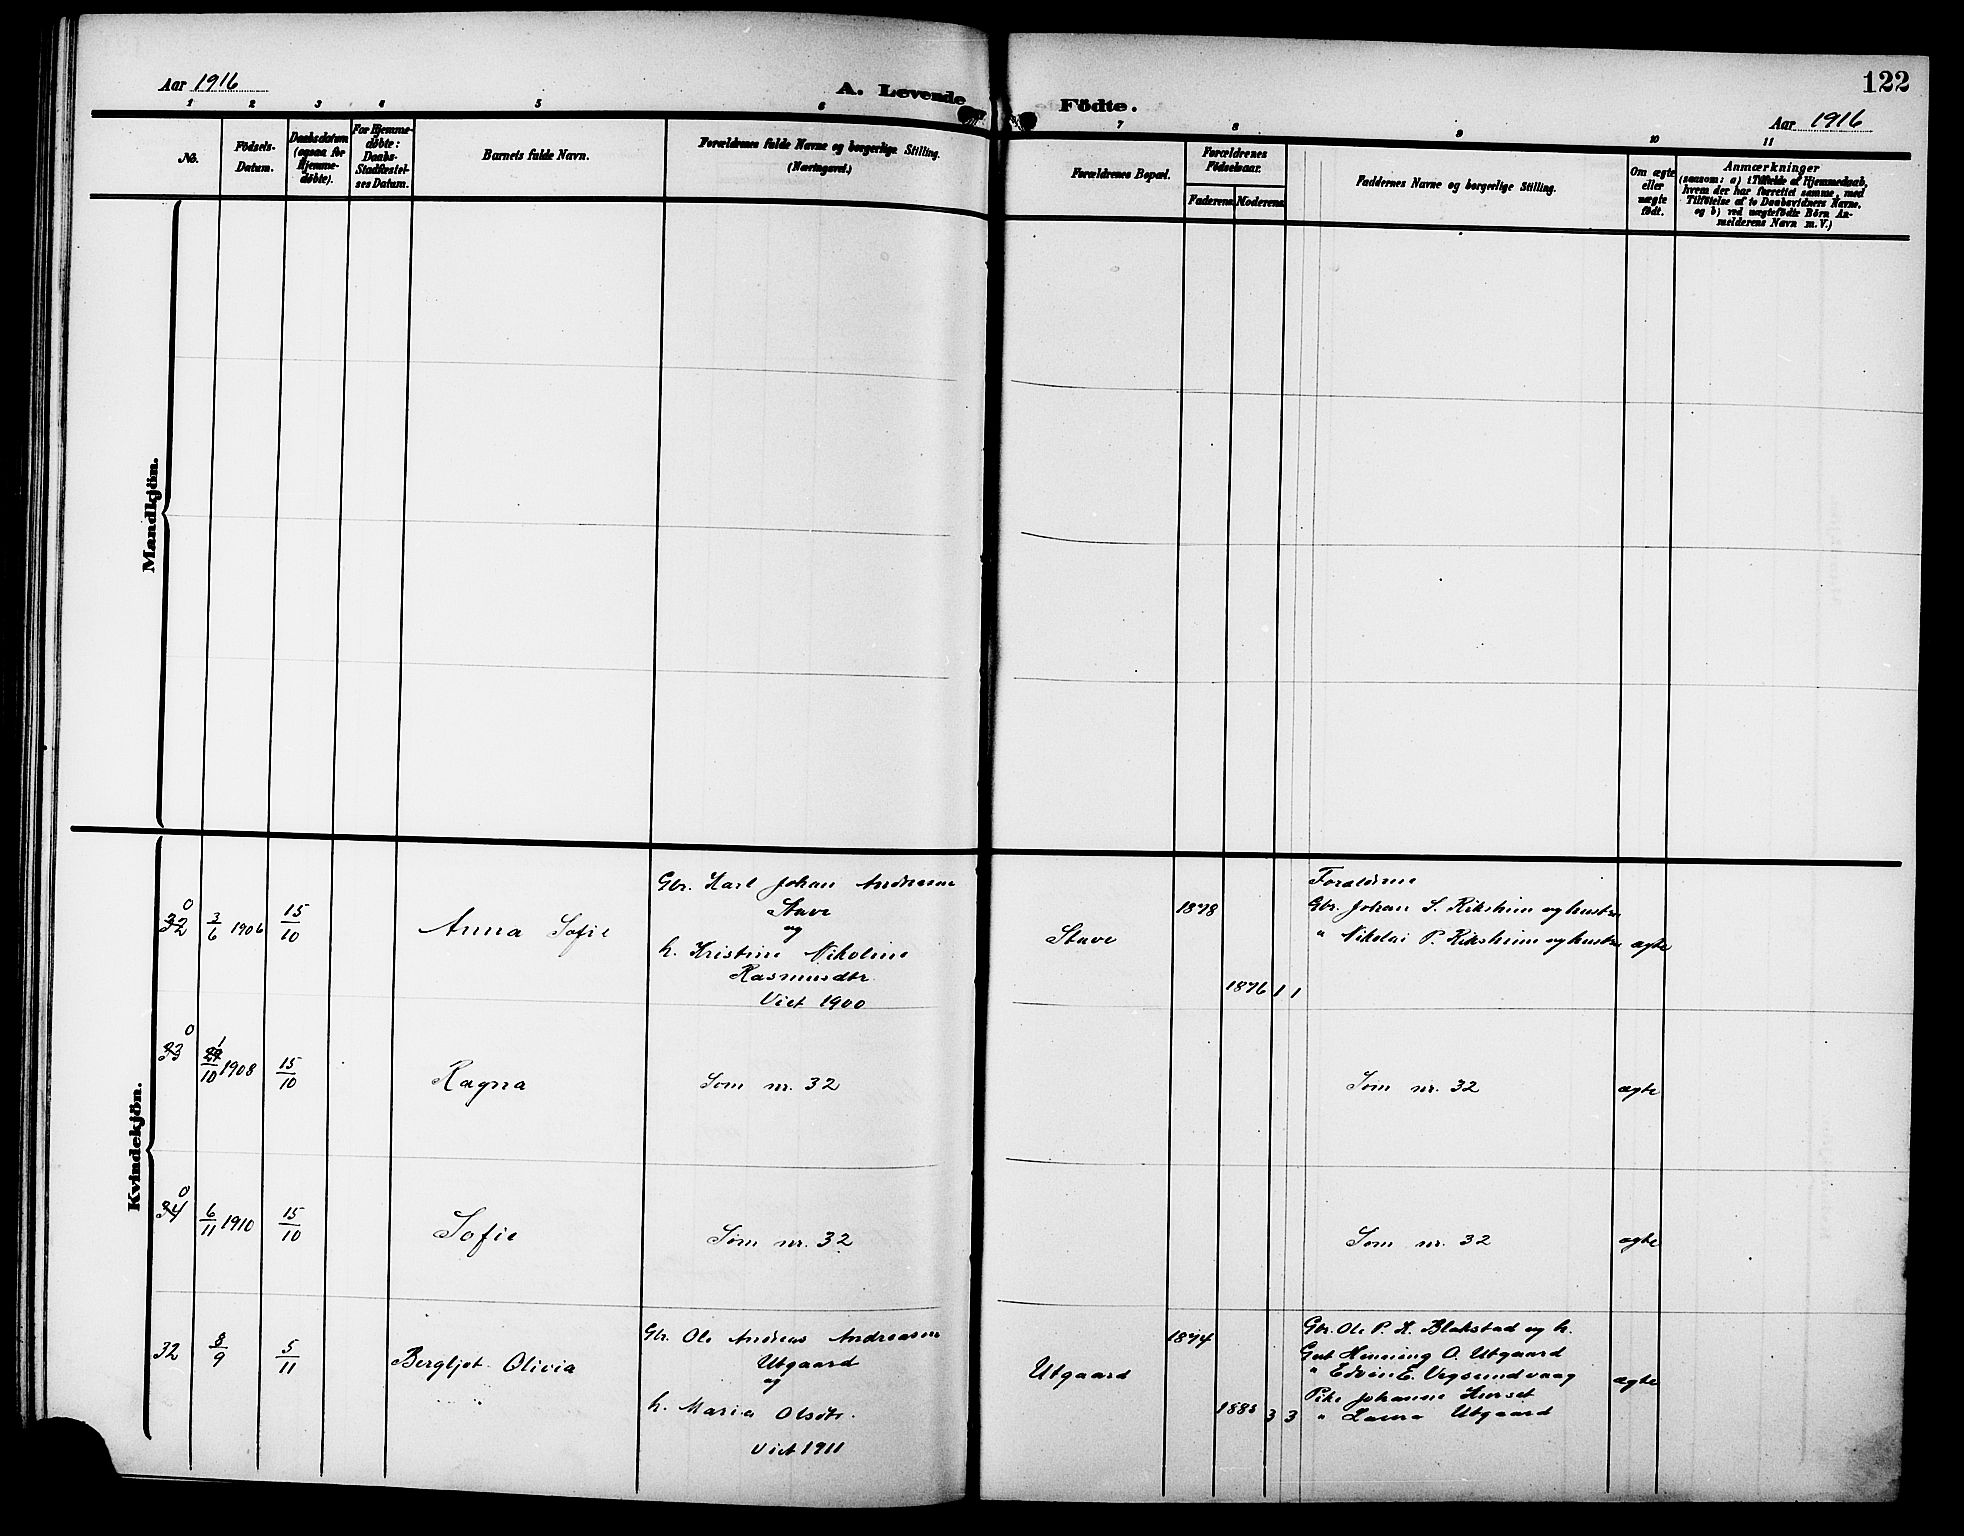 Aar 1916
A. Levende
Födte.
122
Aar 1916
1 2 3 4 5 6
7 8 9 10 11
No.
Födsels-
Datum.
Daabsdatum
(ogsaa for
Hjemme-
döbte).
For Hjemme-
döbte:
Daabs-
Stadfæstel-
ses Datum.
Barnets fulde Navn.
Forældrenes fulde Navne og borgerlige Stilling.
(Næringsvei.)
Forældrenes Bopæl.
Forældrenes
Födselsaar.
Faderens Moderens
Faddernes Navne og borgerlige Stilling.
Om ægte
eller
uægte
födt.
Anmærkninger
(saasom: a) i Tilfælde af Hjemmedaab,
hvem der har forrettet samme, med
Tilföielse af to Daabsvidners Navne.
og b) ved uægtefödte Börn An-
melderens Navn m. V.)
Mandkjön.
Kvindekjön.
0
32
3/6 1906
15/10
Anna Sofie
Gbr. Karl Johan Andreassen
Stave
og
h. Kristine Nikoline
Rasmusdtr.
Viet 1900
Stave
1878
1876 1 1
Forældrene
Gbr. Johan S. Riksheim og hustru
" Nikolai P. Riksheim og hustru
ægte
0
33
10 1908
15/10
Ragna
Som nr. 32
Som nr. 32
ægte
0
34
6/11 1910
15/10
Sofie
Som nr. 32
Som nr. 32
ægte
32
8/9
5/11
Bergljot Olivia
Gbr. Ole Andreas Andreassen
Utgaard
og
h. Maria Olsdtr.
Viet 1911
Utgaard
1874
1888 3 3
Gbr. Ole P. K. Blakstad og h.
Gut Henning O. Utgaard
" Edvin E. Vegsundvaag
Pike Johanne Hurset
" Laura Utgaard
ægte